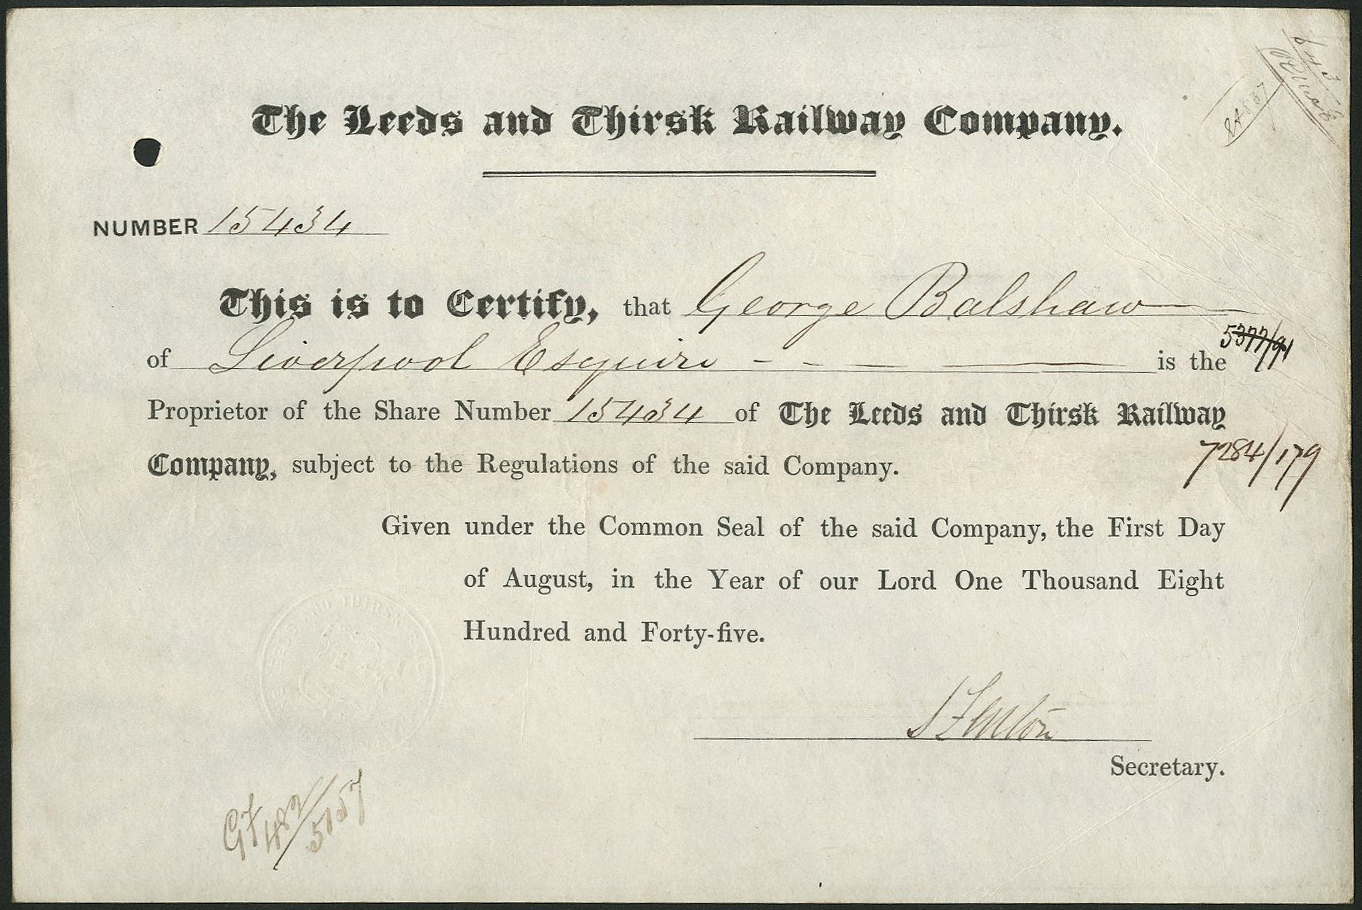 The Leeds and Thirsk Railway Company.
NUMBER 15434
This is to Certify, that George Balshaw
of Liverpool Esquire - - — — is the
5377/91
Proprietor of the Share Number 15434 of The Leeds and Thirsk Railway
Company, subject to the Regulations of the said Company.
7284/179
Given under the Common Seal of the said Company, the First Day
of August, in the Year of our Lord One Thousand Eight
Hundred and Forty-five.
S Fenton
Secretary.
482/5157